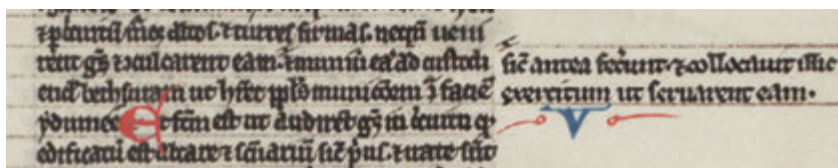 ⁊ ꝑ circuitũ muros altos. ⁊ turres firmas. nequñ ueni
rent gẽs ⁊ ↄculcarent eam. ⁊ muniuit eã ad custodi
endã bethsuram ut hr̃et ppl̃s municõem faciẽ
ydumee Et fc̃m est ut audirẽt gẽs in circuitu q̃
edificatũ est altare ⁊ sc̃uariũ sic̃ p̃us. ⁊ irate sũt
sic̃ antea fec̃unt. ⁊ collocauit illic
exercitum ut seruarent eam.
V